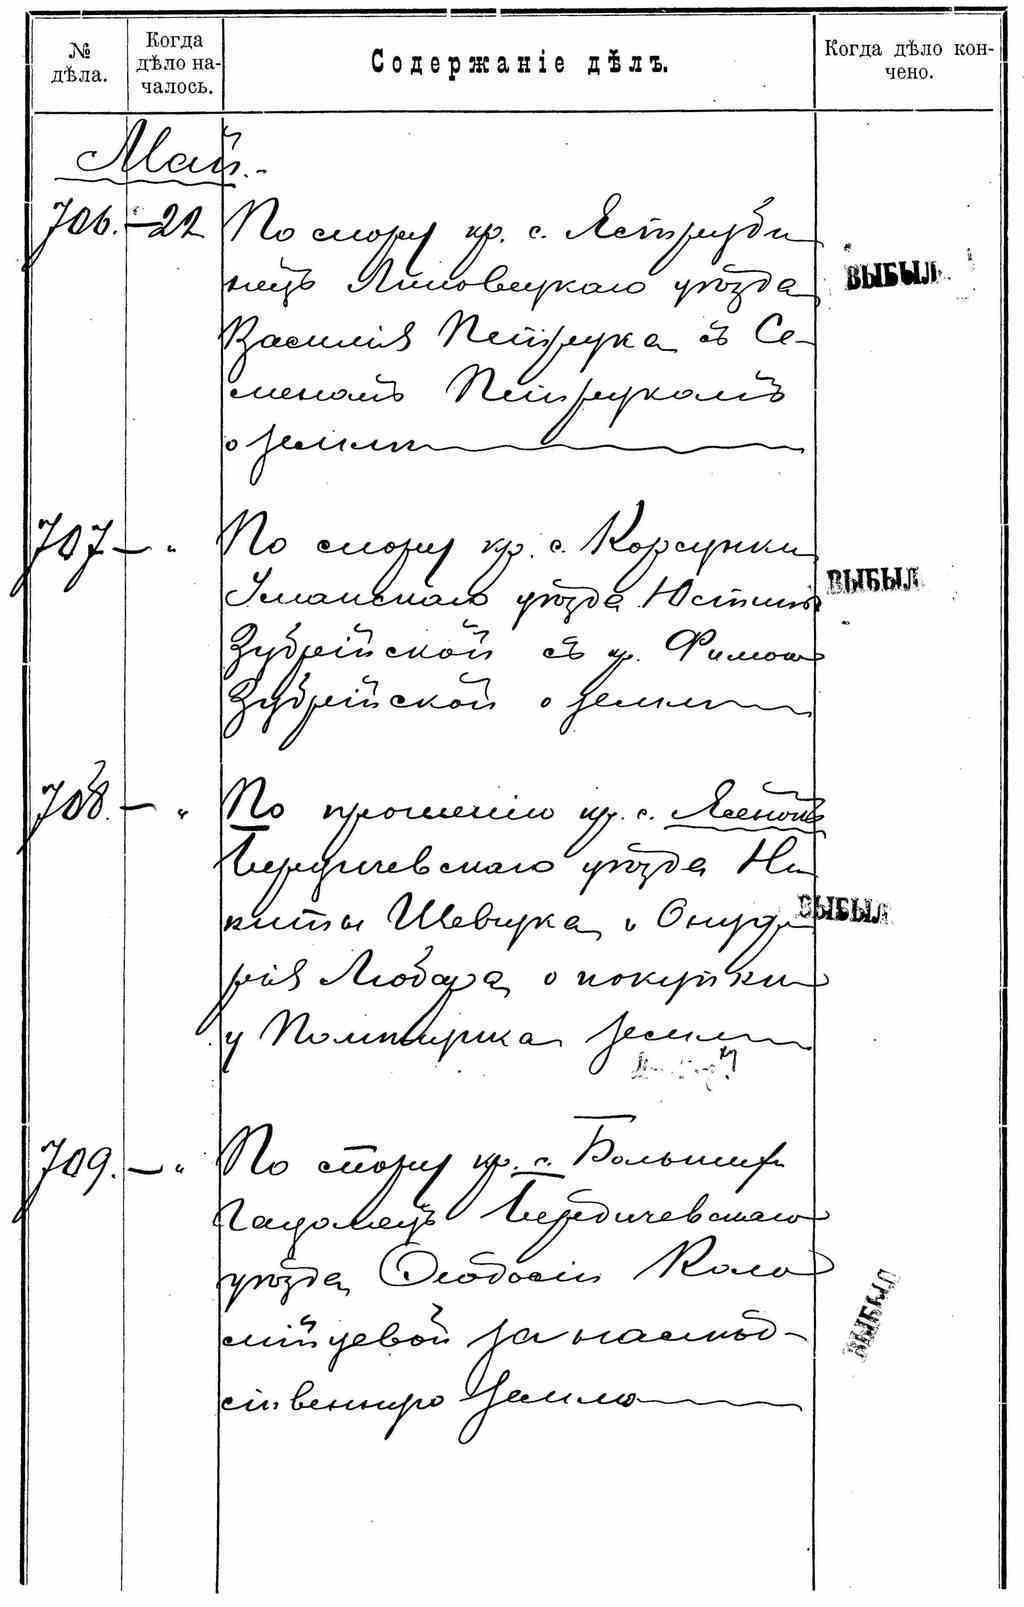 № дѣла.
Когда дѣло на-
чалось.
Содержаніе дѣлъ.
Когда дѣло кон-
чено.
Май.
706. — 22 По спору кр. с. Ястируби
нецъ Липовецкаго уѣзда
Василія Петрука съ Се-
меномъ Петрукомъ
о землѣ
ВЫБЫЛ
707 — " По спору кр. с. Корсунки
Уманскаго уѣзда Юстины
Зубрійской съ кр. Филимон
Зубрійской о землѣ
ВЫБЫЛ
708. — " По прошенію кр. с. Ясенокъ
Бердичевскаго уѣзда Ни
киты Шевчука и Онуф
рія Любара о покупки
у земли
ВЫБЫЛ
709. — " По спору кр. с. Большихъ
Гадомецъ Бердичевскаго
уѣзда Ѳеодосіи Коло
мійцевой за наслѣд-
ственную землю
ВЫБЫЛ